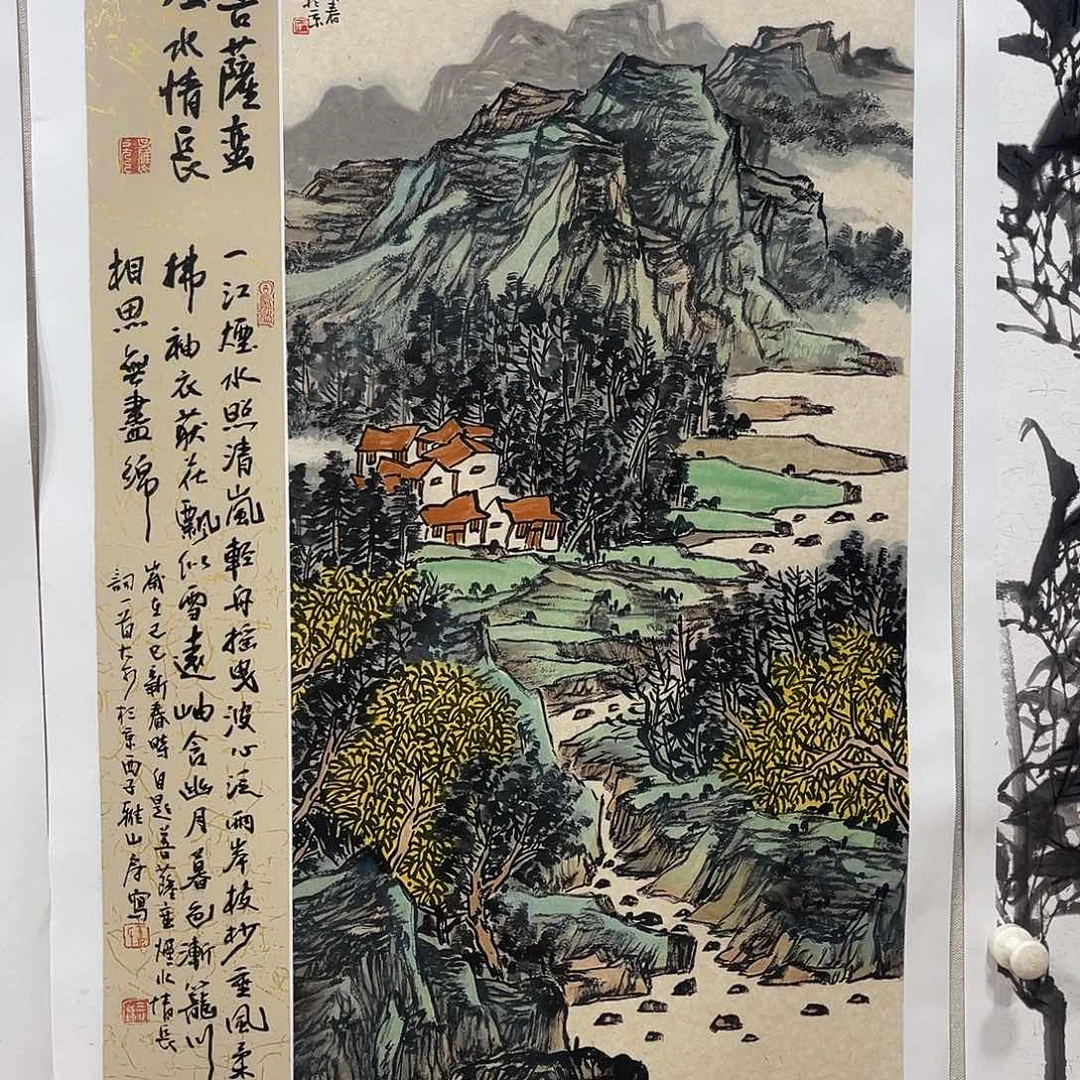 菩薩蛮
煙水情長
一江煙水照清嵐輕舟摇曳波心泛兩岸枝杪垂風柔
拂袖衣荻花飄似雪遠岫含幽月暮色漸籠川
相思無盡綿
歲在乙巳新春時自題菩薩蛮煙水情長
詞一首於京西子雅山房寫
春
於京